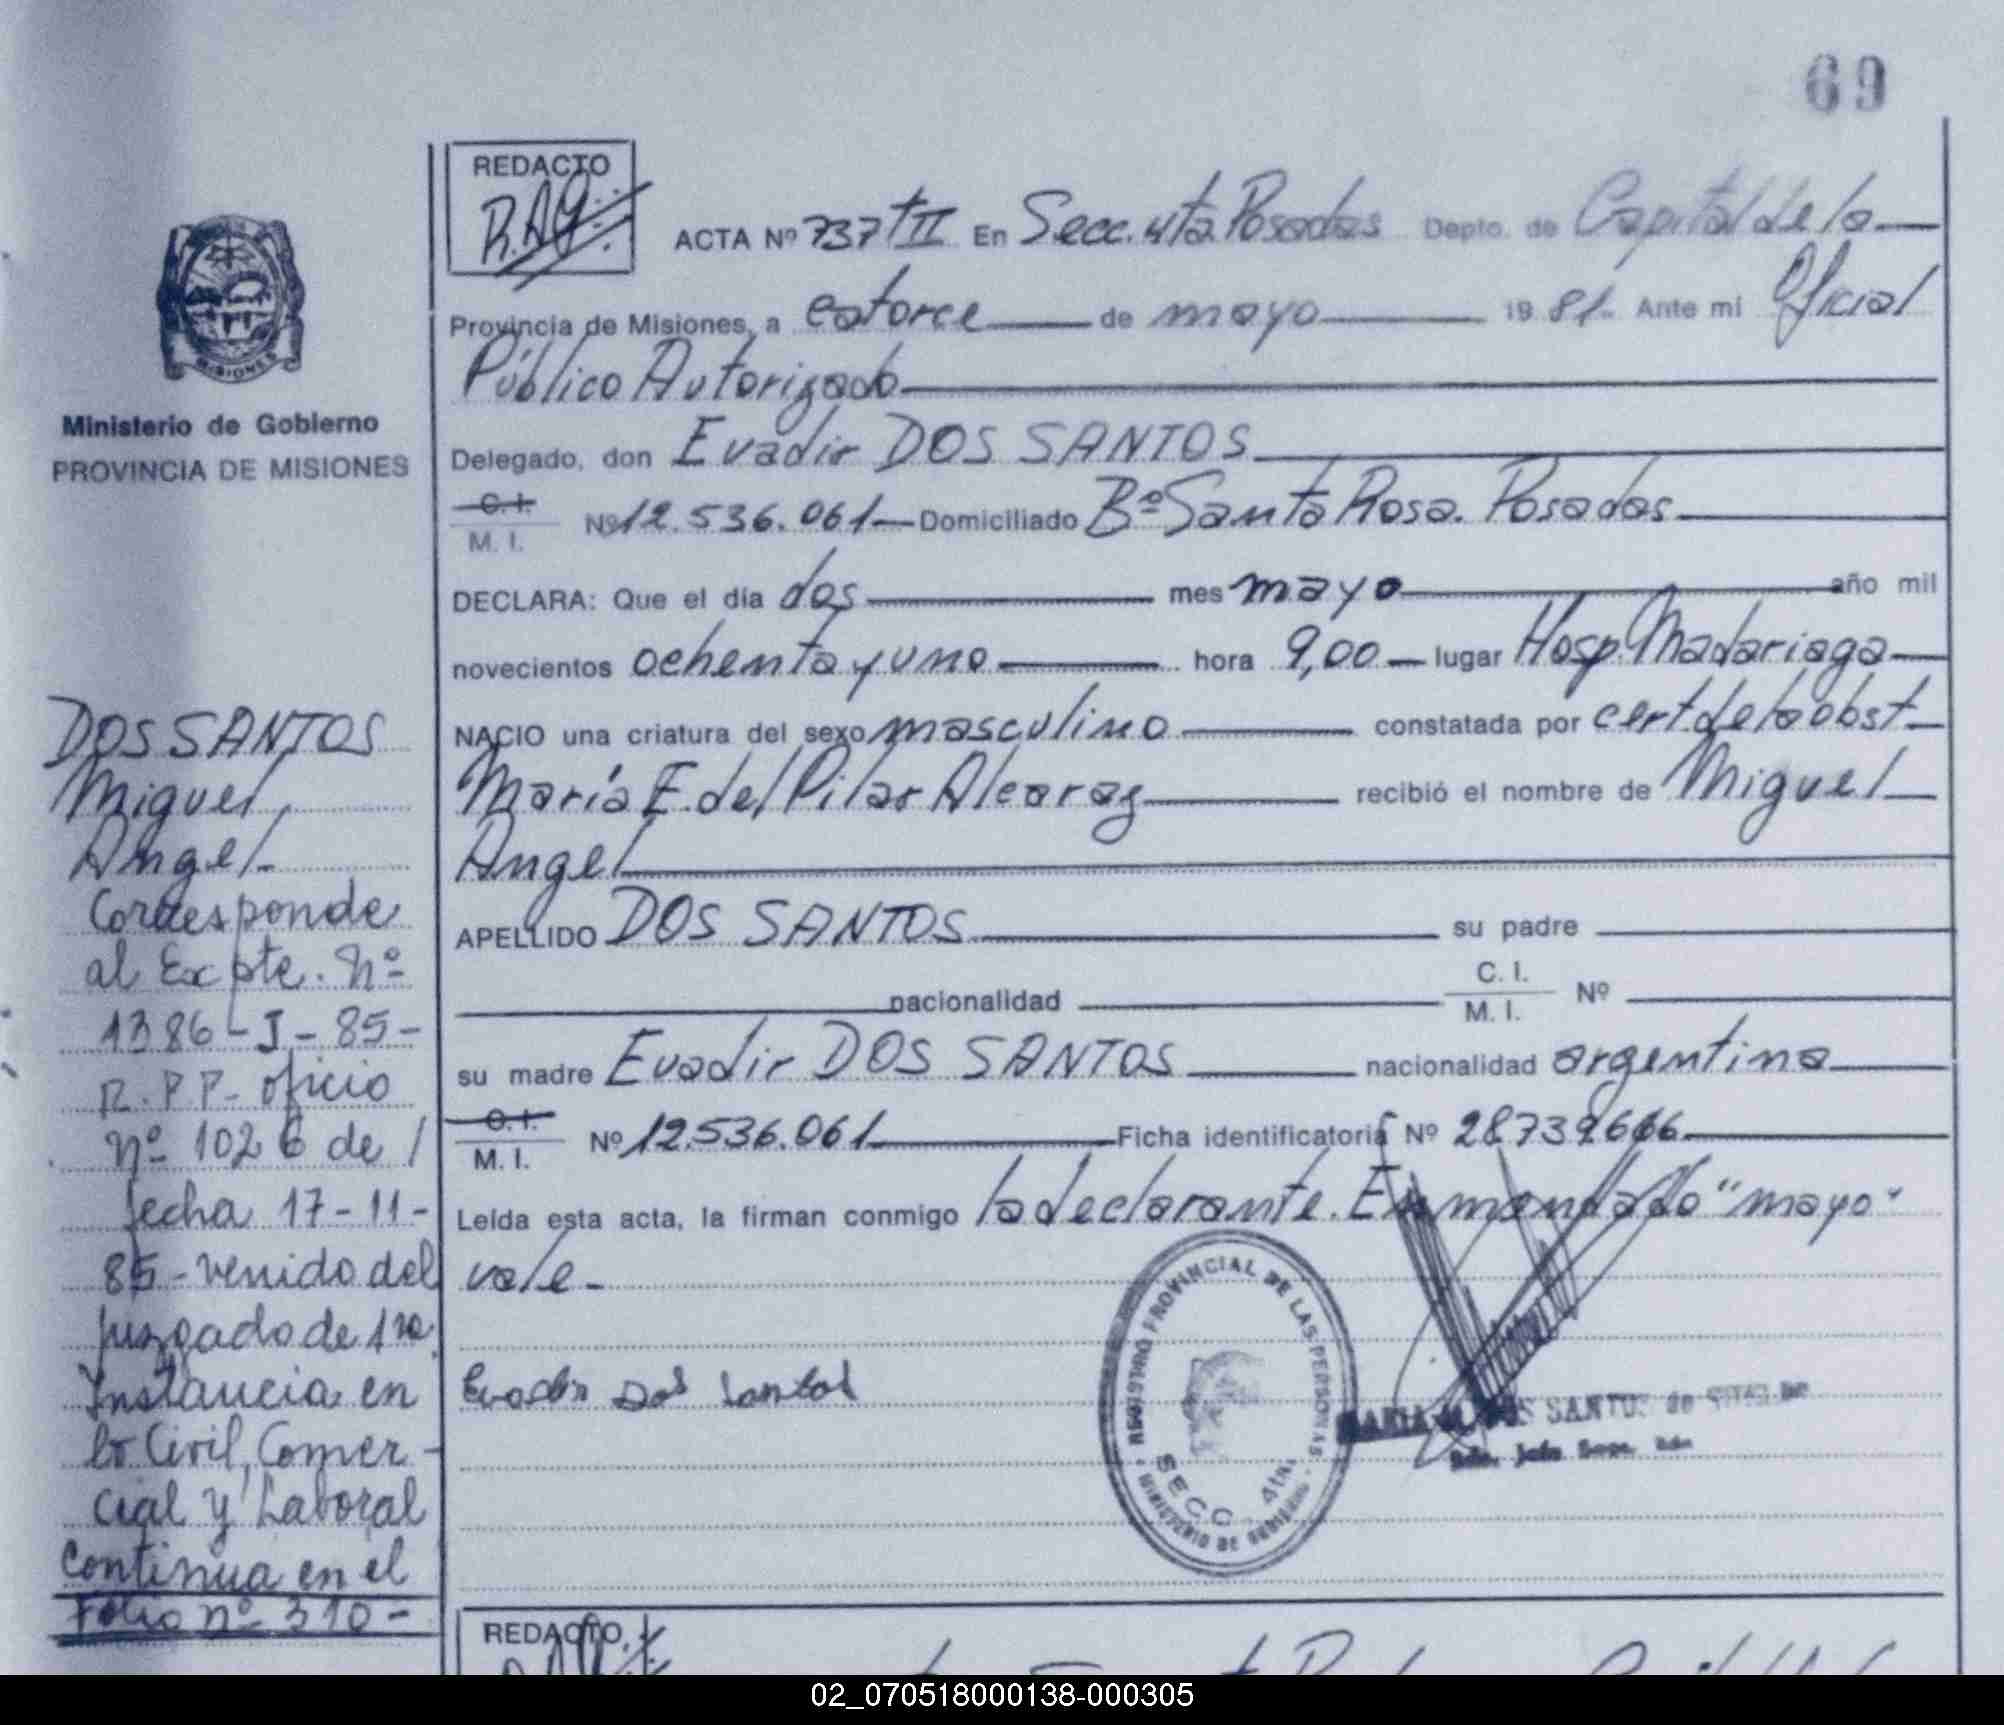 69
REDACTO
R.A.G.
ACTA Nº 737 tII En Secc. 4ta. Posadas Depto. de Capital de la
Provincia de Misiones, a catorce de mayo 1981- Ante mi Oficial
Público Autorizado
Delegado, don Evadir DOS SANTOS
C. I.
M. I. Nº 12.536.061 Domiciliado Bº Santa Rosa. Posadas
DECLARA: Que el día dos mes mayo año mil
novecientos ochenta y uno hora 9,00 lugar Hosp. Madariaga
NACIO una criatura del sexo masculino constatada por cert de la obst
María E. del Pilar Alcaraz recibió el nombre de Miguel
Angel
APELLIDO DOS SANTOS su padre
nacionalidad C. I.
M. I. Nº
su madre Evadir DOS SANTOS nacionalidad argentina
C. I.
M. I. Nº 12.536.061 Ficha identificatoria Nº
Leída esta acta, la firman conmigo la declarante. Enmendado "mayo"
vale-
Evadir Dos Santos
REGISTRO PROVINCIAL DE LAS PERSONAS
SECC. 4ta.
MINISTERIO DE GOBIERNO
MARIA DOS SANTOS de
MISIONES
Ministerio de Gobierno
PROVINCIA DE MISIONES
DOS SANTOS
Miguel
Angel-
Corresponde
al Expte. Nº
1386-J-85-
R.P.P- oficio
nº 1026 de /
fecha 17-11-
85- venido del
Juzgado de 1ra.
Instancia en
lo Civil, Comer-
cial y Laboral
Continua en el
Folio nº 310-
REDACTO
02_070518000138-000305